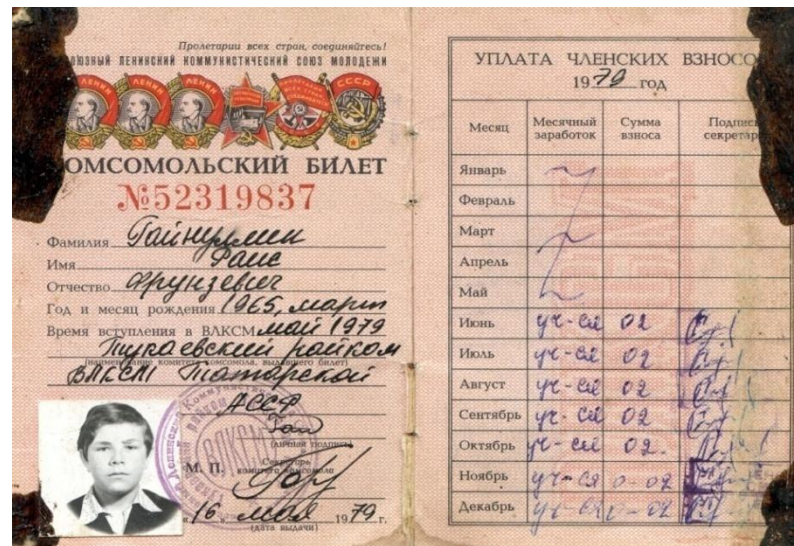 Пролетарии всех стран, соединяйтесь!
ЛЕНИНСКИЙ КОММУНИСТИЧЕСКИЙ СОЮЗ МОЛОДЕЖИ
ЛЕНИН ЛЕНИН ЛЕНИН СССР
КОМСОМОЛЬСКИЙ БИЛЕТ
№52319837
Фамилия Гайнуллин
Имя Раис
Отчество Фрунзевич
Год и месяц рождения 1965, март
Время вступления в ВЛКСМ май 1979
Тукаевский райком
(наименование комитета комсомола, выдавшего билет)
ВЛКСМ Татарской
АССР
(личная подпись)
М. П. Секретарь
комитета комсомола
"16" мая 1979 г.
(дата выдачи)
ВЛКСМ
УПЛАТА ЧЛЕНСКИХ ВЗНОСО
1979 год
Месяц Месячный заработок Сумма взноса Подпись секретаря
Январь
Февраль
Март
Апрель
Май
Июнь уч-ся 02
Июль уч-ся 02
Август уч-ся 02
Сентябрь уч-ся 02
Октябрь уч-ся 02.
Ноябрь уч-ся 0-02
Декабрь уч-ся 0-02